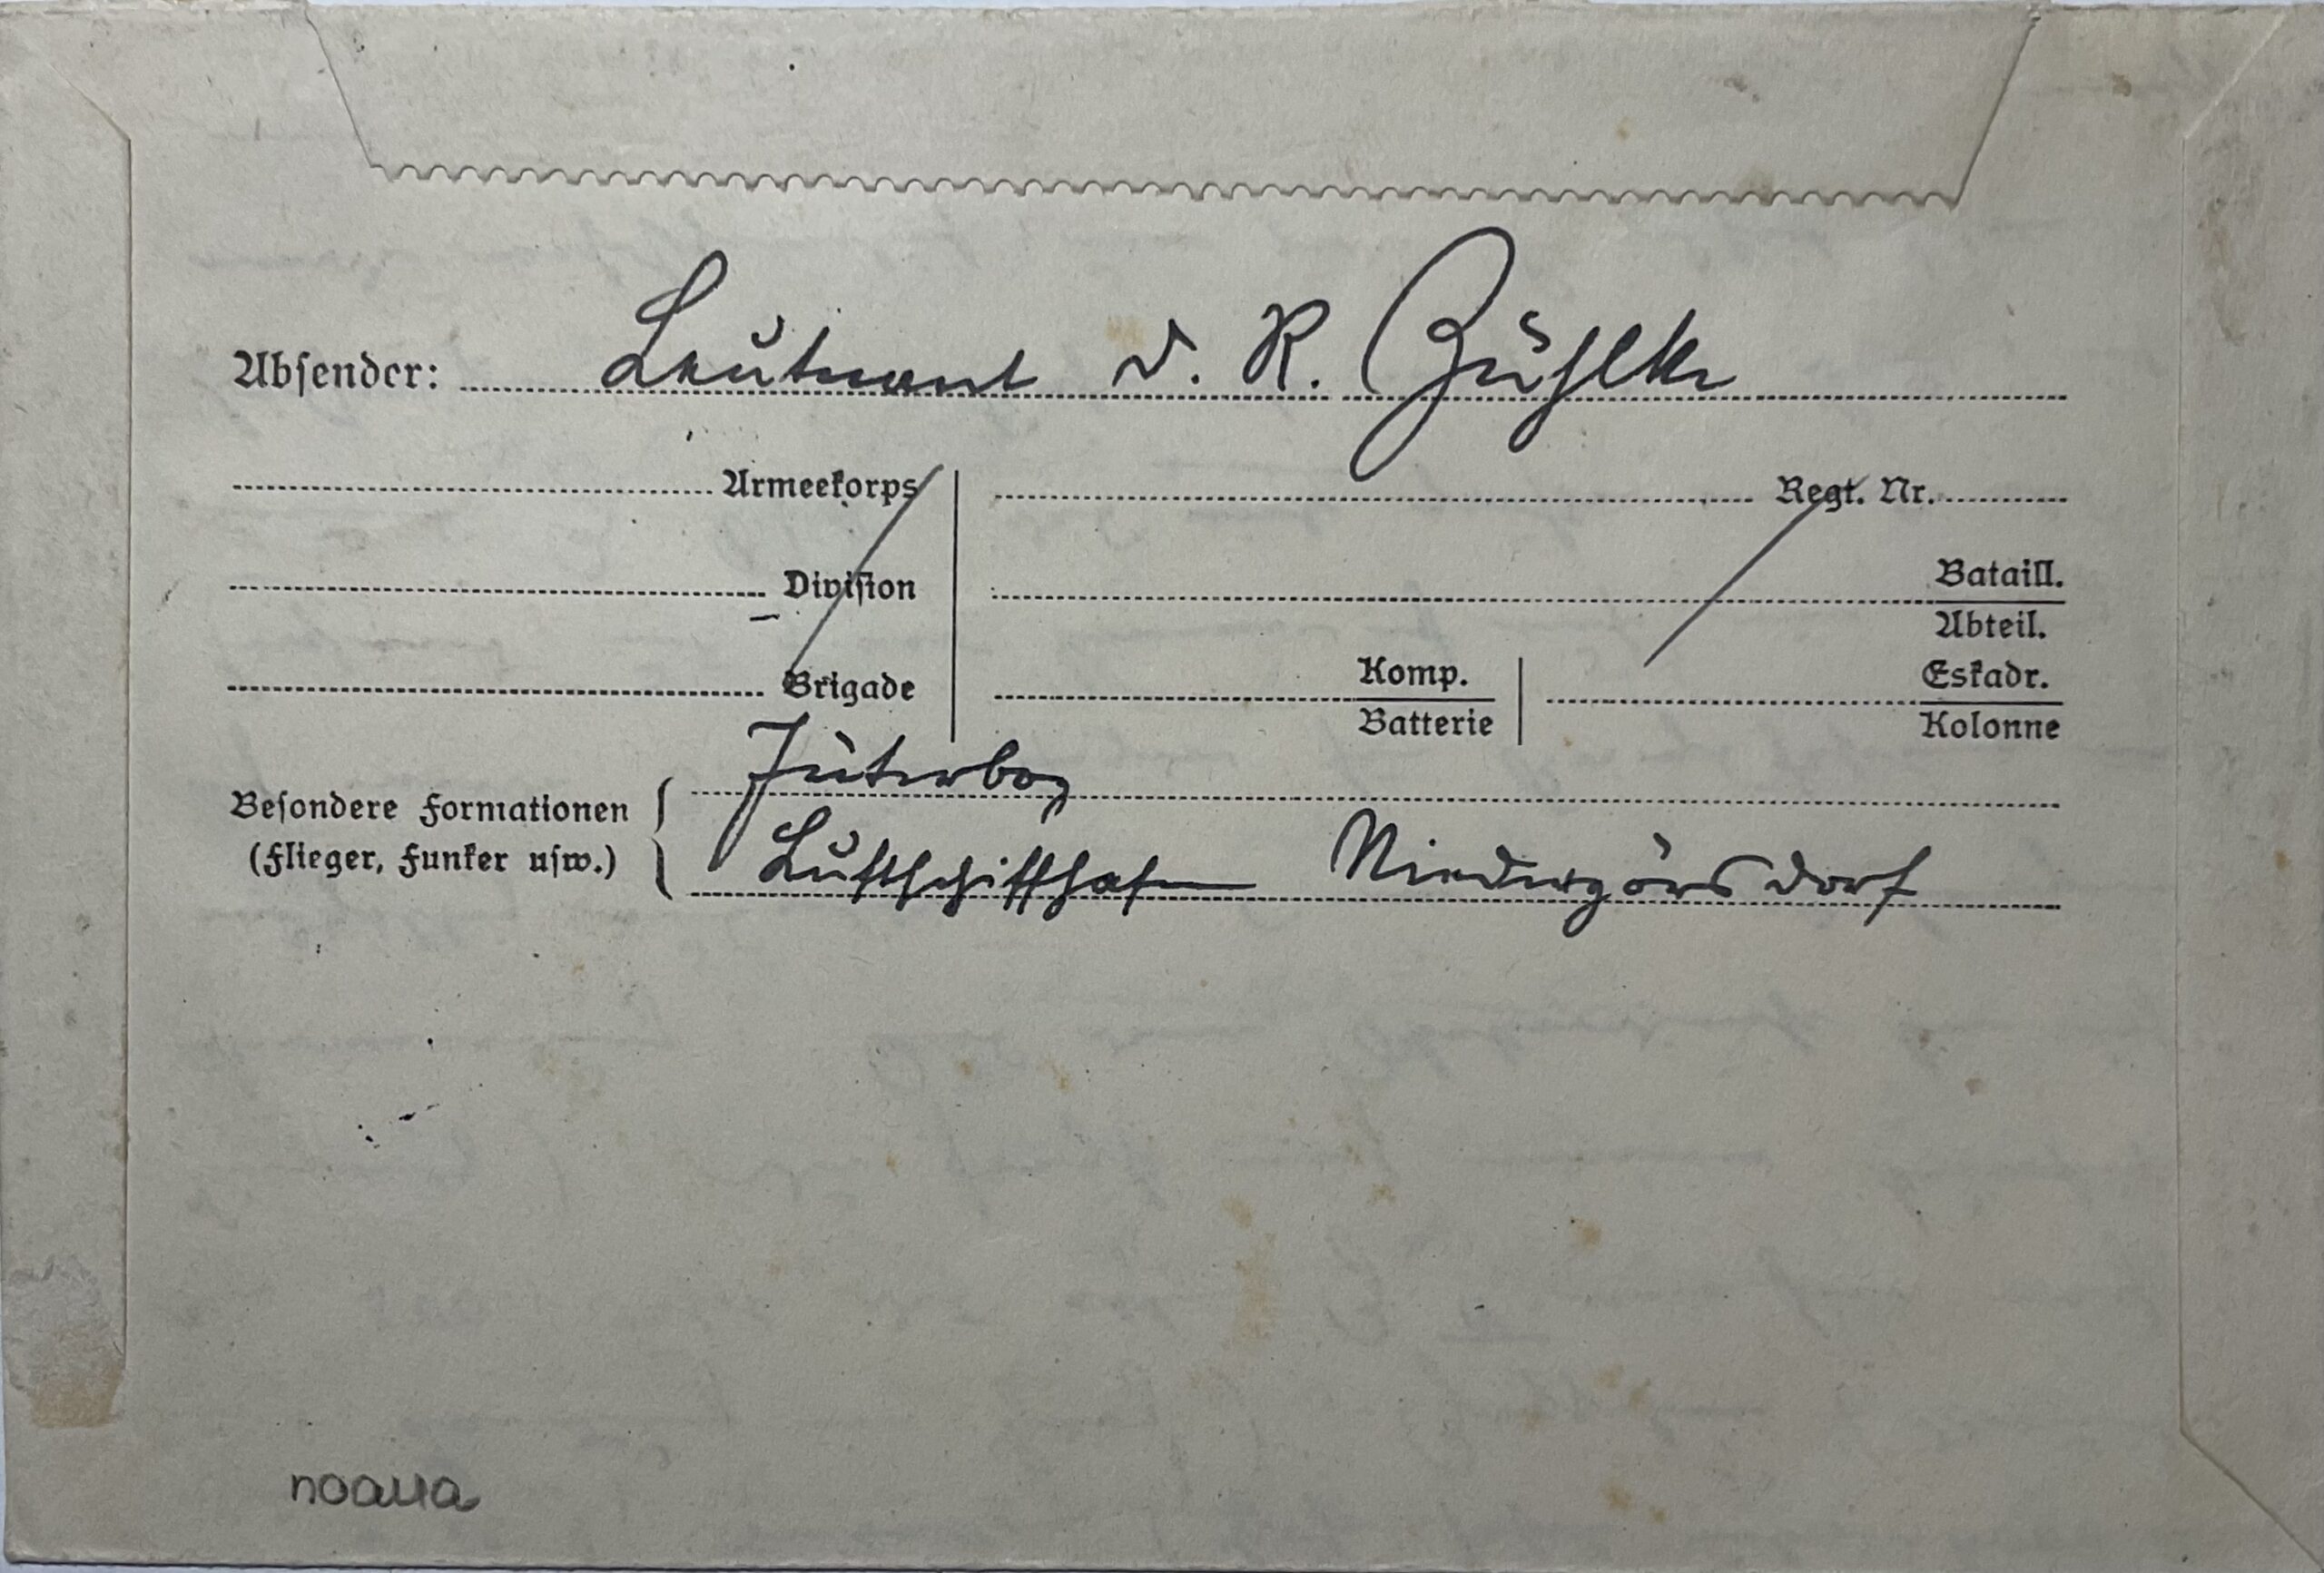 Absender: Leutnant d. R. Zühlke
Armeekorps Regt. Nr.
Division Bataill.
Abteil.
Brigade Komp. Eskadr.
Batterie Kolonne
Jüterbog
Besondere Formationen
(Flieger, Funker usw.) Luftschiffhafen Niedergörsdorf